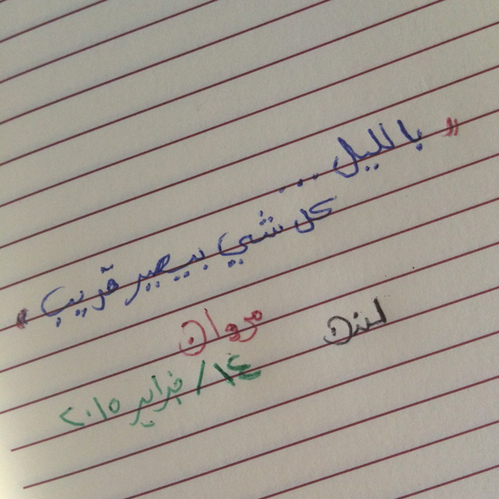 "بالليل...
كل شي بيصير قريب"
لندن مروان
١٤/فبراير ٢٠١٥